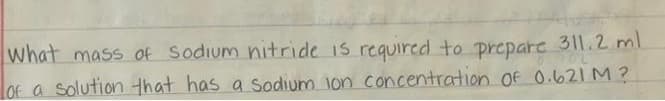 What mass of sodium nitride is required to prepare 311.2 ml
of a solution that has a sodium ion concentration of 0.621 M?